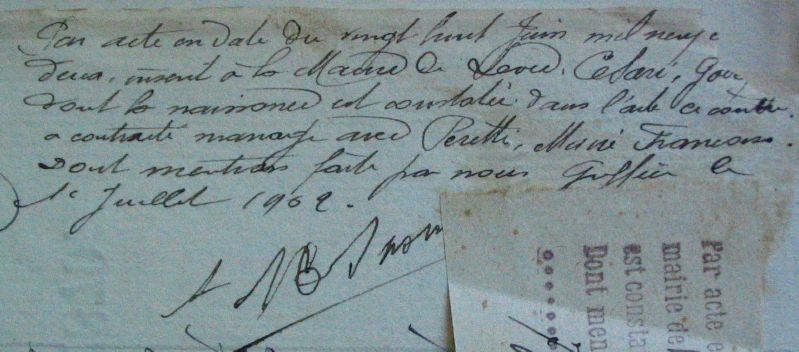 Par acte en date du vingt huit Juin mil neuf c
deux, inscrit à la Mairie de Levie, Cesari,
dont la naissance est constatée dans l'acte ci contre.
a contracté mariage avec Peretti, Marie Françoise.
Dont mention faite par nous Greffier le
1er Juillet 1902.
Par acte e
mairie de
est consta
Dont men